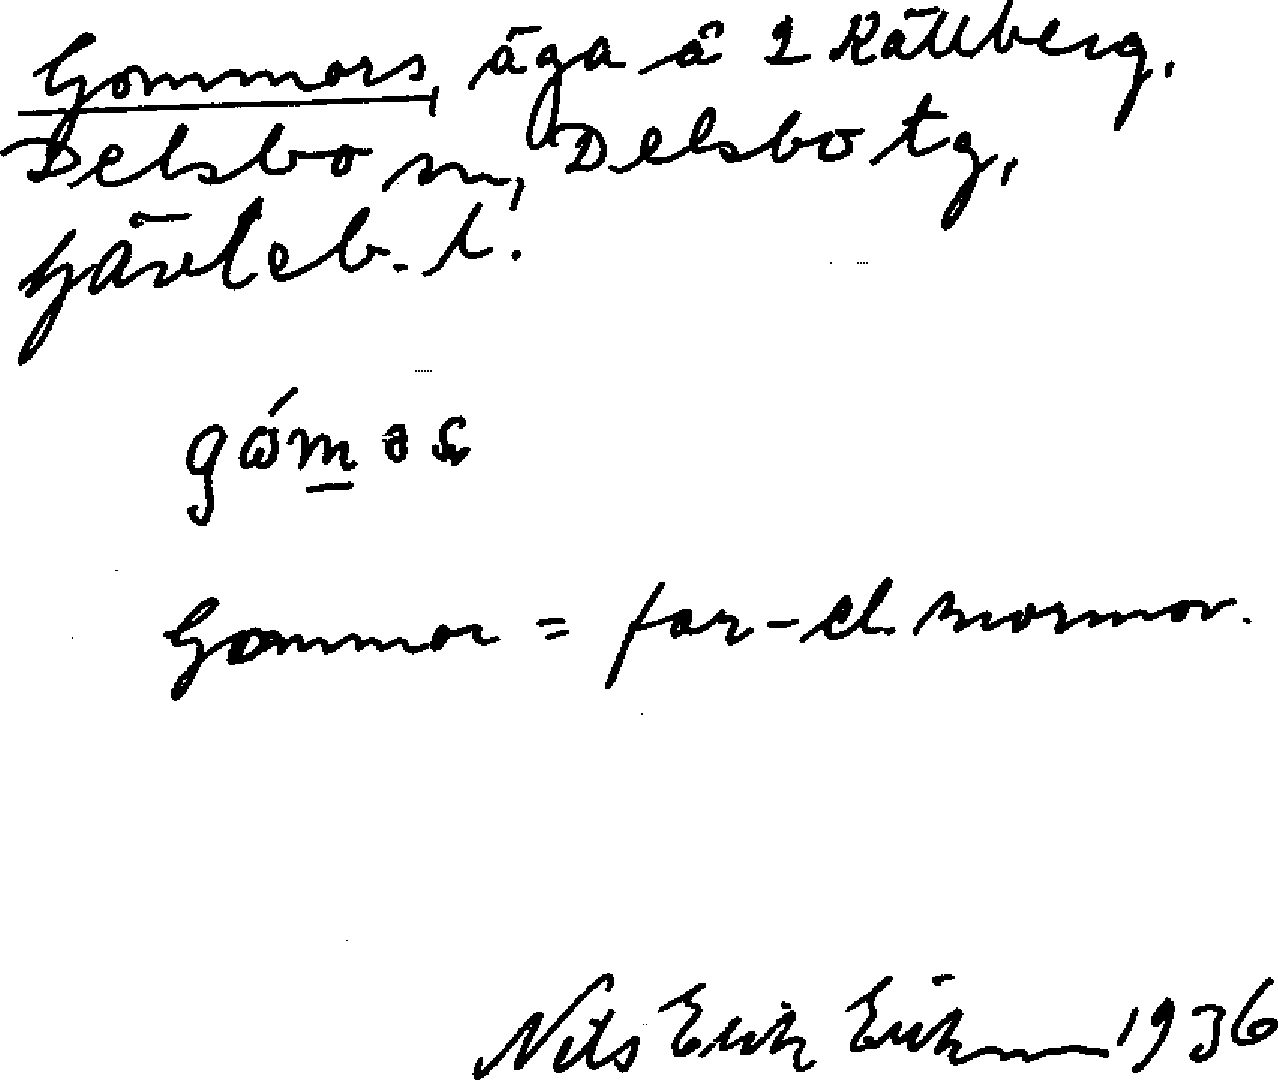 Gommors, äga å 2 Källberg,
Delsbo sn, Delsbo tg,
Gävleb. l.
gómərs
Gommor = far- el. mormor.
Nils Erik 1936